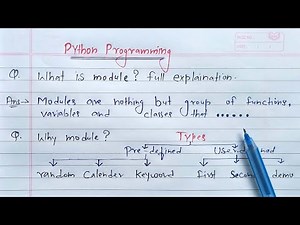 Python Programming
Q. What is module? full explaination.
Ans → Modules are nothing but group of functions,
variables and classes that ......
Q. Why module? Types
Pre-defined Userdefined
random Calender Keyword first Second demo